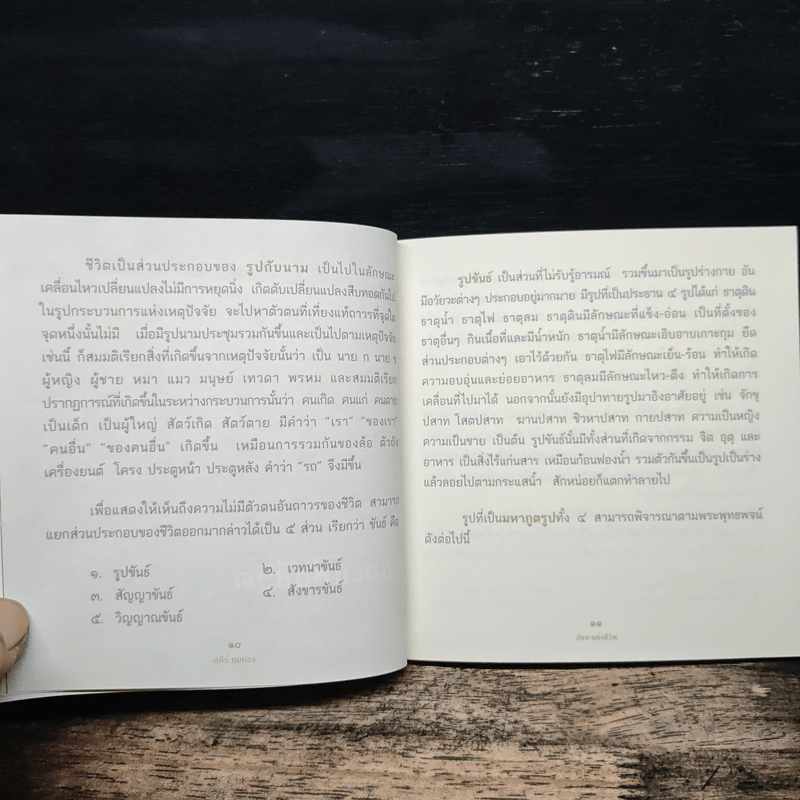 ชีวิตเป็นส่วนประกอบของ รูปกับนาม เป็นไปในลักษณะ
เคลื่อนไหวเปลี่ยนแปลงไม่มีการหยุดนิ่ง เกิดดับเปลี่ยนแปลงสืบทอดกันไป
ในรูปกระบวนการแห่งเหตุปัจจัย จะไปหาตัวตนที่เที่ยงแท้ถาวรที่จุดใด
จุดหนึ่งนั้นไม่มี เมื่อมีรูปนามประชุมรวมกันขึ้นและเป็นไปตามเหตุปัจจัย
เช่นนี้ ก็สมมติเรียกสิ่งที่เกิดขึ้นจากเหตุปัจจัยนั้นว่า เป็น นาย ก นาย ข
ผู้หญิง ผู้ชาย หมา แมว มนุษย์ เทวดา พรหม และสมมติเรียก
ปรากฏการณ์ที่เกิดขึ้นในระหว่างกระบวนการนั้นว่า คนเกิด คนแก่ คนตาย
เป็นเด็ก เป็นผู้ใหญ่ สัตว์เกิด สัตว์ตาย มีคำว่า “เรา” “ของเรา”
“คนอื่น” “ของคนอื่น” เกิดขึ้น เหมือนการรวมกันของล้อ ตัวถัง
เครื่องยนต์ โครง ประตูหน้า ประตูหลัง คำว่า “รถ” จึงมีขึ้น
เพื่อแสดงให้เห็นถึงความไม่มีตัวตนอันถาวรของชีวิต สามารถ
แยกส่วนประกอบของชีวิตออกมากล่าวได้เป็น ๕ ส่วน เรียกว่า ขันธ์ คือ
๑. รูปขันธ์ ๒. เวทนาขันธ์
๓. สัญญาขันธ์ ๔. สังขารขันธ์
๕. วิญญาณขันธ์
๑๐
สุภีร์ ทุมทอง
รูปขันธ์ เป็นส่วนที่ไม่รับรู้อารมณ์ รวมขึ้นมาเป็นรูปร่างกาย อัน
มีอวัยวะต่างๆ ประกอบอยู่มากมาย มีรูปที่เป็นประธาน ๔ รูปได้แก่ ธาตุดิน
ธาตุน้ำ ธาตุไฟ ธาตุลม ธาตุดินมีลักษณะที่แข็ง-อ่อน เป็นที่ตั้งของ
ธาตุอื่นๆ กินเนื้อที่และมีน้ำหนัก ธาตุน้ำมีลักษณะเอิบอาบเกาะกุม ยึด
ส่วนประกอบต่างๆ เอาไว้ด้วยกัน ธาตุไฟมีลักษณะเย็น-ร้อน ทำให้เกิด
ความอบอุ่นและย่อยอาหาร ธาตุลมมีลักษณะไหว-ตึง ทำให้เกิดการ
เคลื่อนที่ไปมาได้ นอกจากนั้นยังมีอุปาทายรูปมาอิงอาศัยอยู่ เช่น จักขุ
ปสาท โสตปสาท ฆานปสาท ชิวหาปสาท กายปสาท ความเป็นหญิง
ความเป็นชาย เป็นต้น รูปขันธ์นั้นมีทั้งส่วนที่เกิดจากกรรม จิต อุตุ และ
อาหาร เป็นสิ่งไร้แก่นสาร เหมือนก้อนฟองน้ำ รวมตัวกันขึ้นเป็นรูปเป็นร่าง
แล้วลอยไปตามกระแสน้ำ สักหน่อยก็แตกทำลายไป
รูปที่เป็นมหาภูตรูปทั้ง ๔ สามารถพิจารณาตามพระพุทธพจน์
ดังต่อไปนี้
๑๑
สัจจะแห่งชีวิต